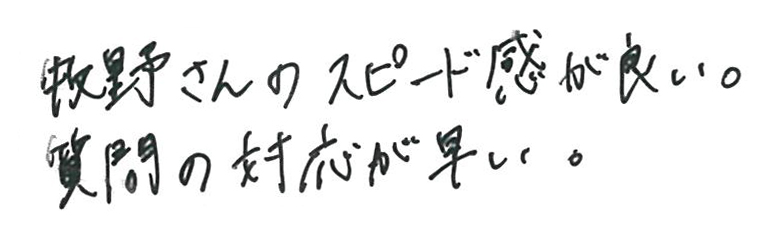 牧野さんのスピード感が良い。
質問の対応が早い。